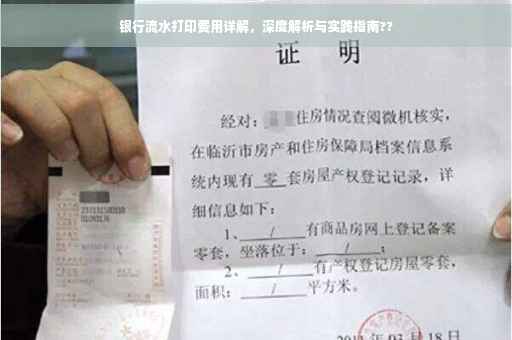 银行流水打印费用详解，深度解析与实践指南??
证 明
经对：住房情况查阅微机核实，
在临沂市房产和住房保障局档案信息系
统内现有 零 套房屋产权登记记录，详
细信息如下：
1、 / 有商品房网上登记备案
零套，坐落位于： / ；
2、 / 有产权登记房屋零套，
面积： / 平方米。
03月18日